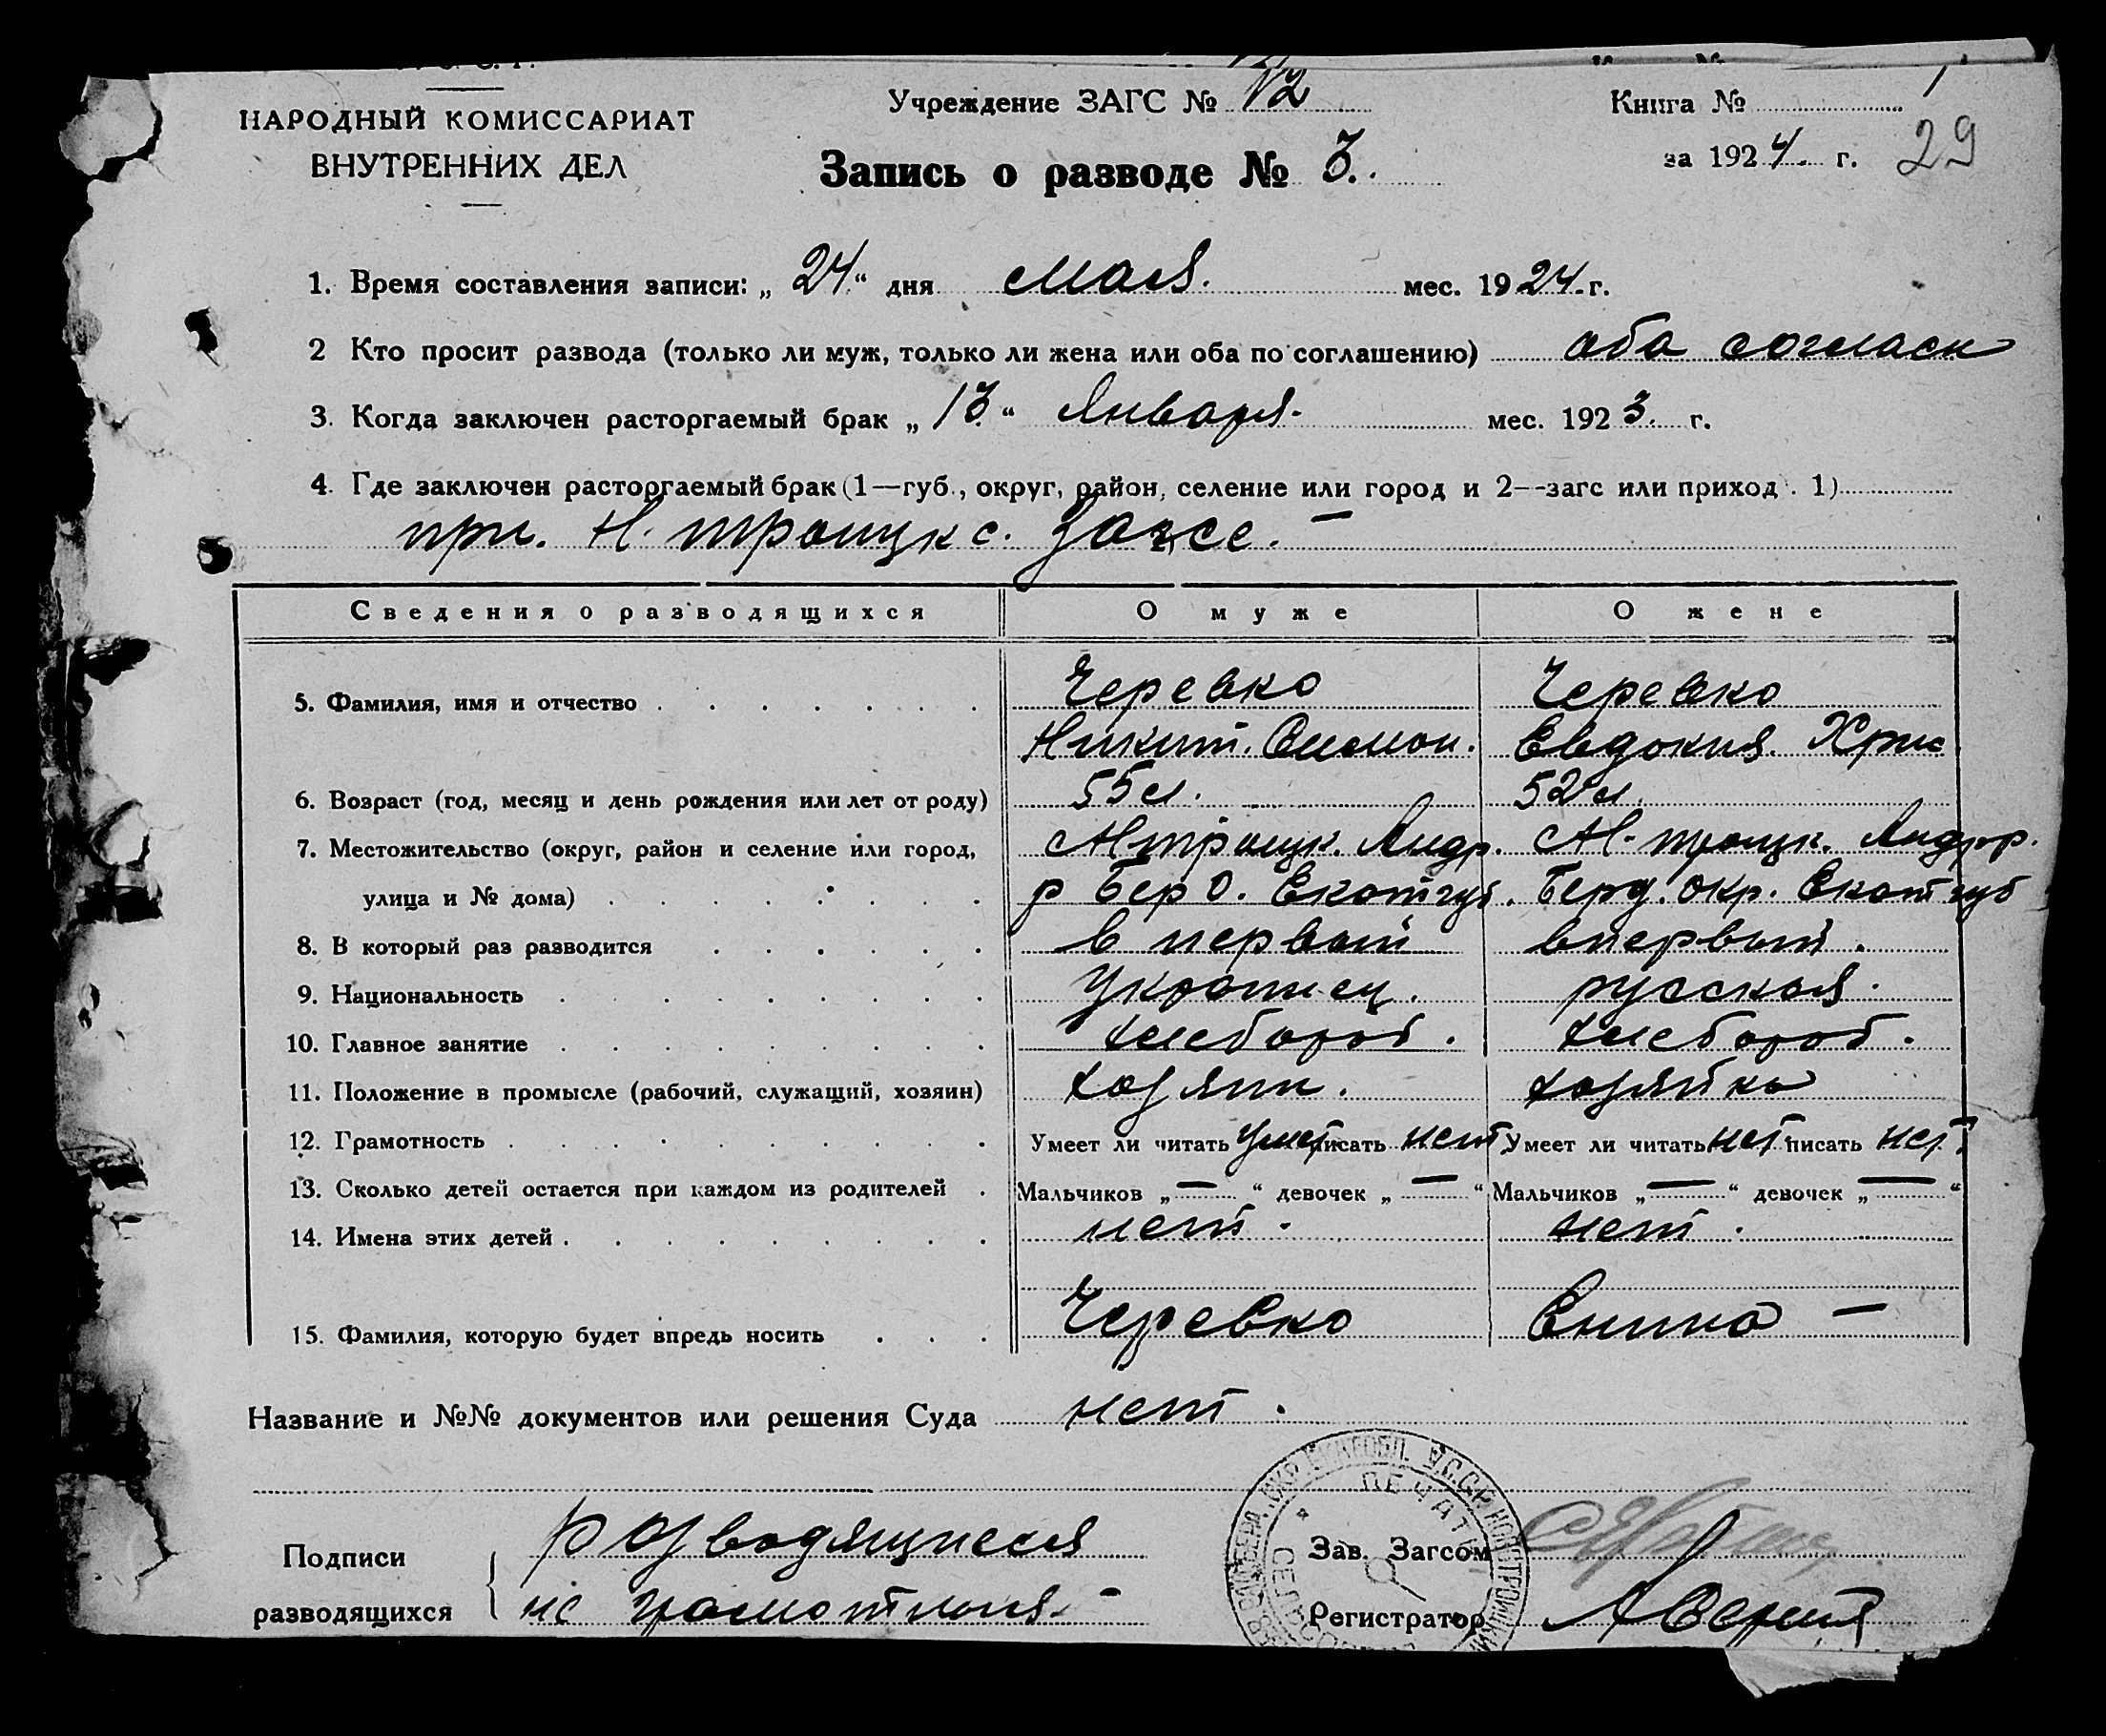 НАРОДНЫЙ КОМИССАРИАТ
ВНУТРЕННИХ ДЕЛ
Учреждение ЗАГС № 12
Книга № 1
Запись о разводе № 3.
за 1924. г. 29
1. Время составления записи: „ 24 “ дня мая. мес. 1924. г.
2 Кто просит развода (только ли муж, только ли жена или оба по соглашению) оба согласн
3. Когда заключен расторгаемый брак „ 13 “ Января. мес. 1923. г.
4. Где заключен расторгаемый брак (1—губ., округ, район, селение или город и 2--загс или приход. 1)
при. Н. троицк с. Загсе. —
Сведения о разводящихся О муже О жене
5. Фамилия, имя и отчество Черевко Черевко
Никит. Симон. Евдокия. Хрис
6. Возраст (год, месяц и день рождения или лет от роду) 55 л. 52 л.
7. Местожительство (округ, район и селение или город, Н троицк. Андр. Н. троицк. Андр.
улица и № дома) р Бер О. Екат губ. Берд. окр. Екат губ
8. В который раз разводится в первый впервый.
9. Национальность Украинец. русская.
10. Главное занятие хлебороб. хлебороб.
11. Положение в промысле (рабочий, служащий, хозяин) хозяин. хозяйка
12. Грамотность Умеет ли читать умет писать нет Умеет ли читать нет писать нет.
13. Сколько детей остается при каждом из родителей Мальчиков „ — “ девочек „ — “ Мальчиков „ — “ девочек „ — “
14. Имена этих детей нет. нет.
15. Фамилия, которую будет впредь носить Черевко Енина —
Название и №№ документов или решения Суда нет.
Подписи разводящиеся
разводящихся не грамотныя. –
ПЕЧАТЬ
Зав. Загсом
Регистратор